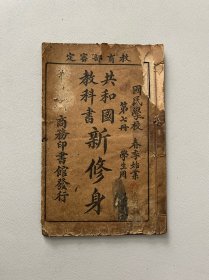 教育部審定
國民學校 春季始業
第七冊 學生用
共和國
教科書
新修身
商務印書館發行